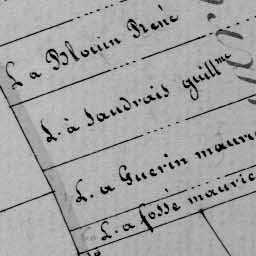 L a Blouin René
L. à Jaudrais guill.me
L. a Guerin mauri
L. a fossé maurice